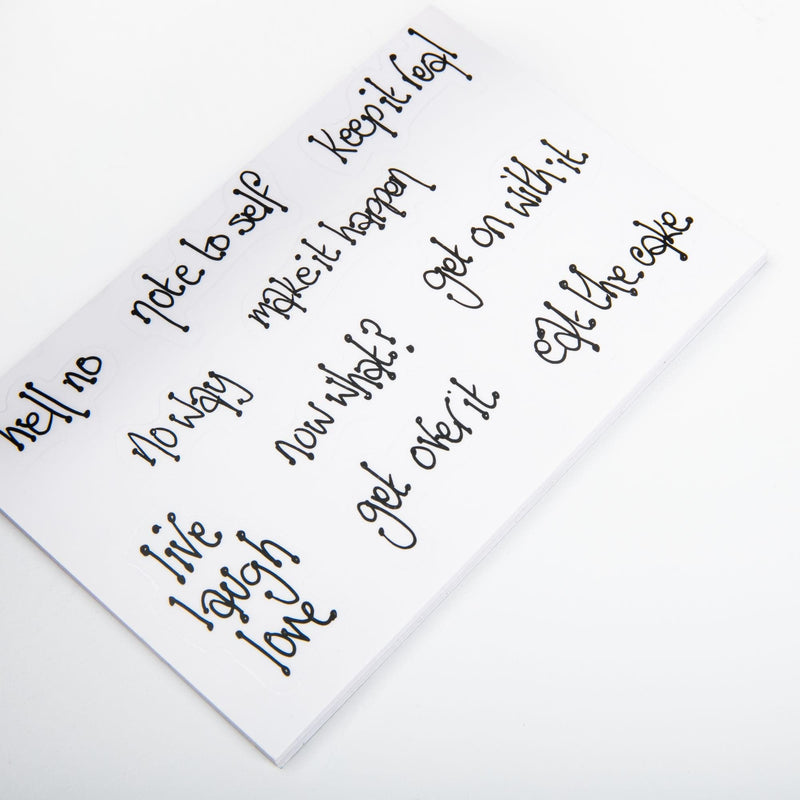 hell no
note to self
Keep it real
no way
make it happen
now what?
get on with it
get over it
eat the cake
live
laugh
love